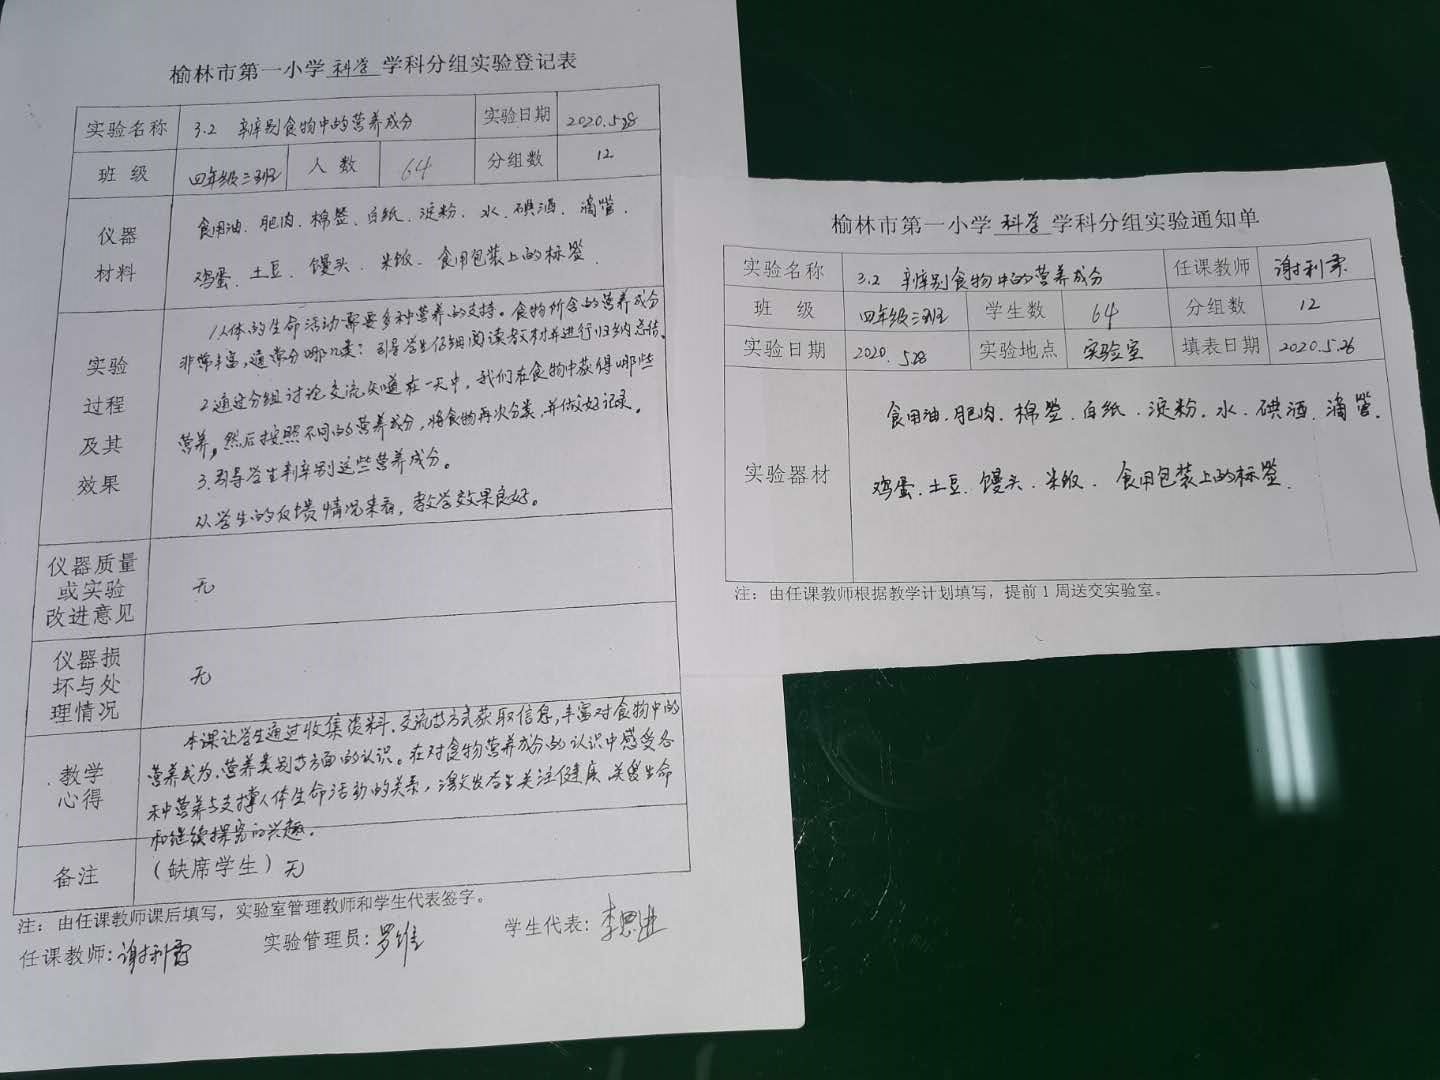 榆林市第一小学 科学 学科分组实验登记表
实验名称 3.2 辨别食物中的营养成分 实验日期 2020.5.28
班 级 四年级三班 人 数 64 分组数 12
仪器 材料
食用油、肥肉、棉签、白纸、淀粉、水、碘酒、滴管、
鸡蛋、土豆、馒头、米饭、食用包装上的标签、
实验 过程 及其 效果
1.人体的生命活动需要多种营养的支持。食物所含的营养成分
非常丰富,通常分哪几类?引导学生仔细阅读教材并进行归纳总结。
2.通过分组讨论交流知道在一天中,我们在食物中获得哪些
营养,然后按照不同的营养成分,将食物再次分类,并做好记录。
3.引导学生辨别这些营养成分。
从学生的反馈情况来看,教学效果良好。
仪器质量
或实验
改进意见
无
仪器损
坏与处
理情况
无
教学
心得
本课让学生通过收集资料、交流等方式获取信息,丰富对食物中的
营养成为、营养类别等方面的认识。在对食物营养成份的认识中感受各
种营养与支撑人体生命活动的关系,激发学生关注健康、关爱生命
和继续探究的兴趣。
备注 (缺席学生)无
注:由任课教师课后填写,实验室管理教师和学生代表签字。
任课教师:谢利霞 实验管理员:罗维 学生代表:李思进
榆林市第一小学 科学 学科分组实验通知单
实验名称 3.2 辨别食物中的营养成分 任课教师 谢利霞
班 级 四年级三班 学生数 64 分组数 12
实验日期 2020.5.28 实验地点 实验室 填表日期 2020.5.26
实验器材
食用油、肥肉、棉签、白纸、淀粉、水、碘酒、滴管、
鸡蛋、土豆、馒头、米饭、食用包装上的标签、
注:由任课教师根据教学计划填写,提前1周送交实验室。